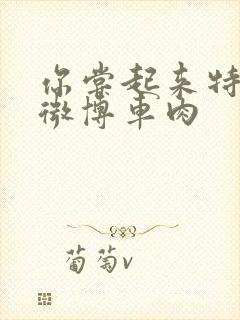 你尝起来特
微博车肉
葡萄v